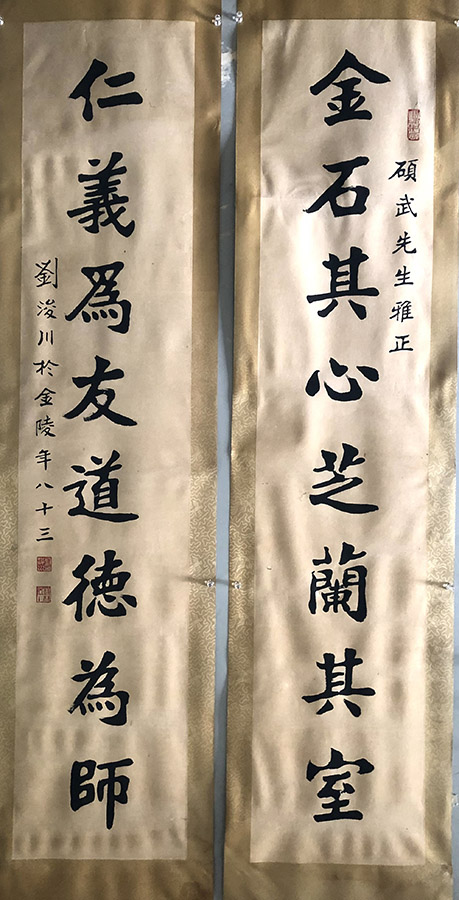 碩武先生雅正
金石其心芝蘭其室
仁義爲友道德為師
劉浚川於金陵年八十三